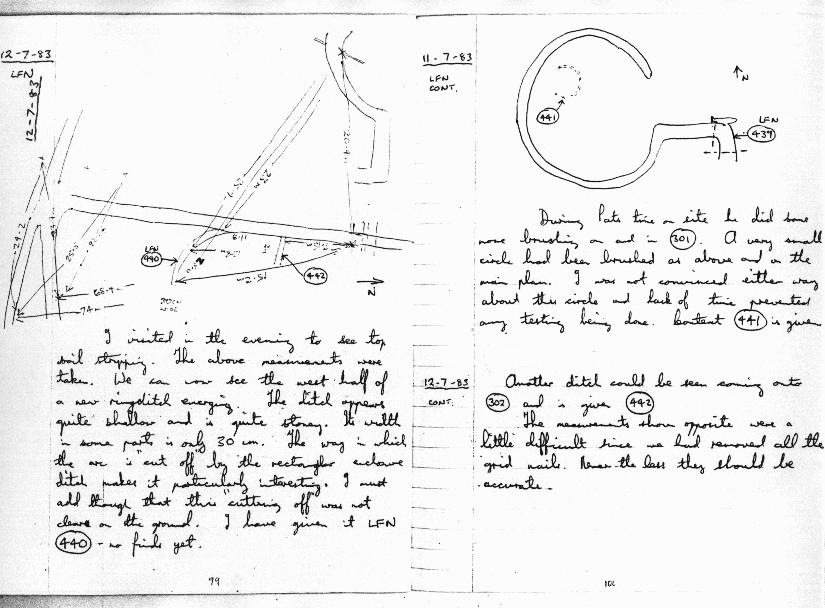 12-7-83
LFN
12-7-83
LFN
440
442
N
I visited in the evening to see top
soil stripping. The above measurements were
taken. We can now see the west half of
a new ringditch emerging. The ditch appears
quite shallow and is quite stoney. Its width
in some parts is only 30 cm. The way in which
the arc is "cut off" by the rectangular enclosure
ditch makes it particularly interesting. I must
add though that this "cutting off" was not
clear on the ground. I have given it LFN
440 - no finds yet.
99
11-7-83
LFN
CONT.
N
441
LFN
439
During Pats time on site he did some
more brushing on and in 301. A very small
circle had been brushed as above and on the
main plan. I was not convinced either way
about this circle and lack of time prevented
any testing being done. Context 441 is given
12-7-83
CONT.
Another ditch could be seen coming onto
302 and is given 442
The measurements shown opposite were a
little difficult since we had removed all the
grid nails. Never the less they should be
accurate.